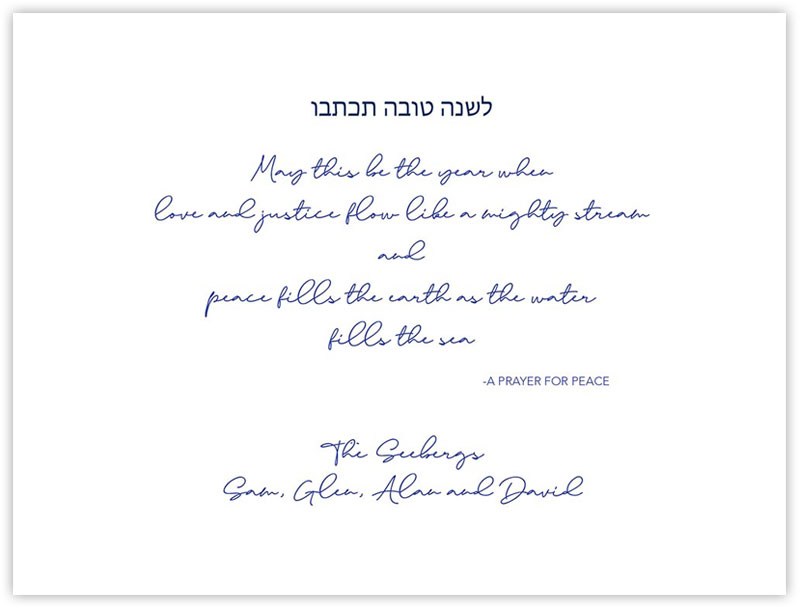 לשנה טובה תכתבו
May this be the year when
love and justice flow like a mighty stream
and
peace fills the earth as the water
fills the sea
-A PRAYER FOR PEACE
The Seebergs
Sam, Glen, Alan and David